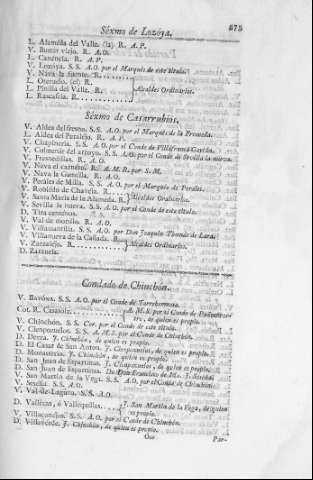 Sèxmo de Lozóya. 875
L. Alaméda del Valle. (la) R. A. P.
V. Bustar viejo. R. A. O.
L. Canéncia. R. A. P.
V. Lozóya. S. S. A. O. por el Marqués de este título.
V. Nava la fuente. R.
L. Oteruelo. (el) R.
L. Pinilla del Valle. R. Alcaldes Ordinarios.
L. Rascafría. R.
Sèxmo de Casarrubios.
V. Aldea del fresno. S. S. A. O. por el Marqués de la
L. Aldea del Peralejo. R. A. P.
V. Chapinería. S. S. A. O. por el Conde de
V. Colmenár del arroyo. S. S. A. O. por el Conde de
V. Fresnedillas. R. A. O.
V. Nava el carnéro. R. A. M. R. por S. M.
V. Nava la Gamella. R. A. O.
V. Perales de Milla. S. S. A. O. por el Marqués de Perales.
V. Robledo de Chavela. R.
V. Santa María de la Alaméda. R. Alcaldes Ordinarios.
V. Sevilla la nueva. S. S. A. O. por el Conde de este título.
D. Tina
V. Val de morillo. R. A. O.
V. Villamantilla. S. S. A. O. por Don Joaquin Thomás de Lara.
V. Villanueva de la Cañada. R.
V. Zarzalejo. R. Alcaldes Ordinarios.
D. Zarzuela.
Condado de Chinchón.
V. Bayóna. S. S. A. O. por el Conde de
Cot. R. Casasola. A. M. R. por el Conde de
de quien es propio.
V. Chinchón. S. S. Cor. por el Conde de este título.
V. Ciempozuelos. S. S. A. M. R. por el Conde de Chinchón.
D. J. Chinchón, de quien es propio.
D. El Casár de San Anton. J. Ciempozuelos, de quien es propio.
D. Monasterio. J. Chinchón, de quien es propio.
D. San Juan de Espartinas. J. Ciempozuelos, de quien es propio.
D. San Juan de Espartinas.
V. San Martin de la Vega. S. S. A. O. por el Conde de Chinchón.
V. Seseña. S. S. A. O.
V. Val-de-Laguna. S. S. A. O.
D. Vallecas, ó J. San Martin de la Vega, de quien
es propio.
V. Villaconejos. S. S. A. O. por el Conde de Chinchón.
D. Villaverde. J. Chinchón, de quien es propio.
Par-